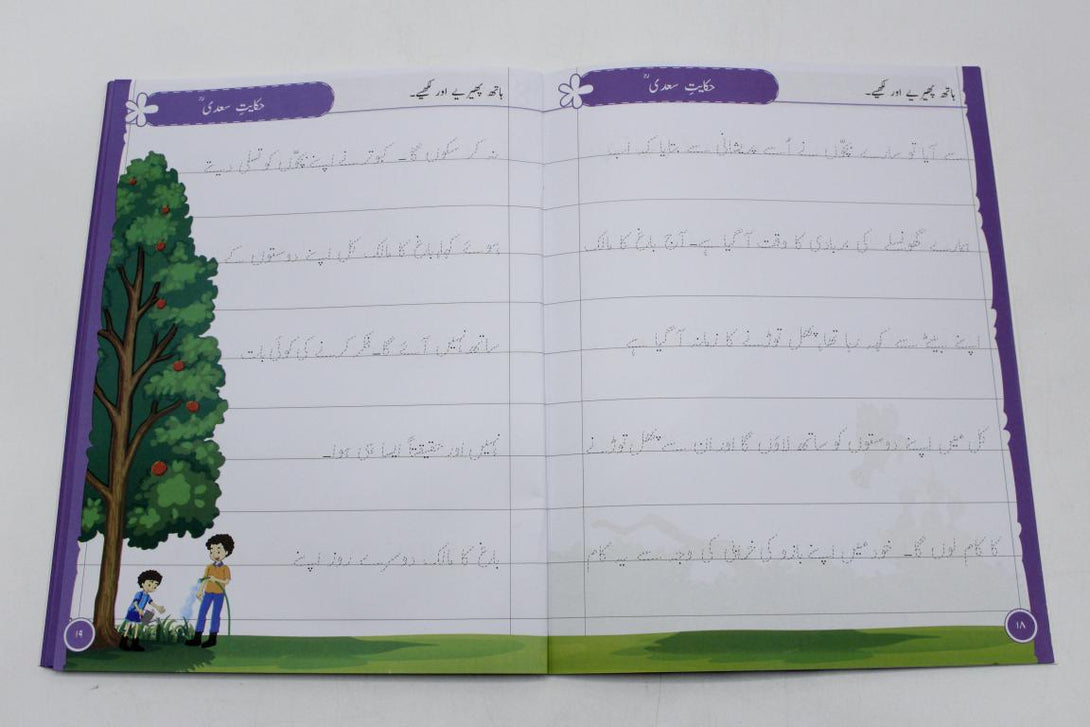 حکایتِ سعدیؒ
ہاتھ پھیریے اور لکھیے۔
سے آیا تو سارے بچّوں نے اُسے پریشانی سے بتایا کہ اب
ہمارے گھونسلے کی بربادی کا وقت آ گیا ہے۔ آج باغ کا مالک
اپنے بیٹے سے کہہ رہا تھا، پھل توڑنے کا زمانہ آ گیا ہے
کل میں اپنے دوستوں کو ساتھ لاؤں گا اور ان سے پھل توڑنے
کا کام لوں گا۔ خود میں اپنے بازو کی خرابی کی وجہ سے یہ کام
۱۸
حکایتِ سعدیؒ
ہاتھ پھیریے اور لکھیے۔
نہ کر سکوں گا۔ کبوتر نے اپنے بچّوں کو تسلی دیتے
ہوئے کہا، باغ کا مالک کل اپنے دوستوں کے
ساتھ نہیں آئے گا۔ فکر کرنے کی کوئی بات
نہیں اور حقیقتاً ایسا ہی ہوا۔
باغ کا مالک دوسرے روز اپنے
۱۹